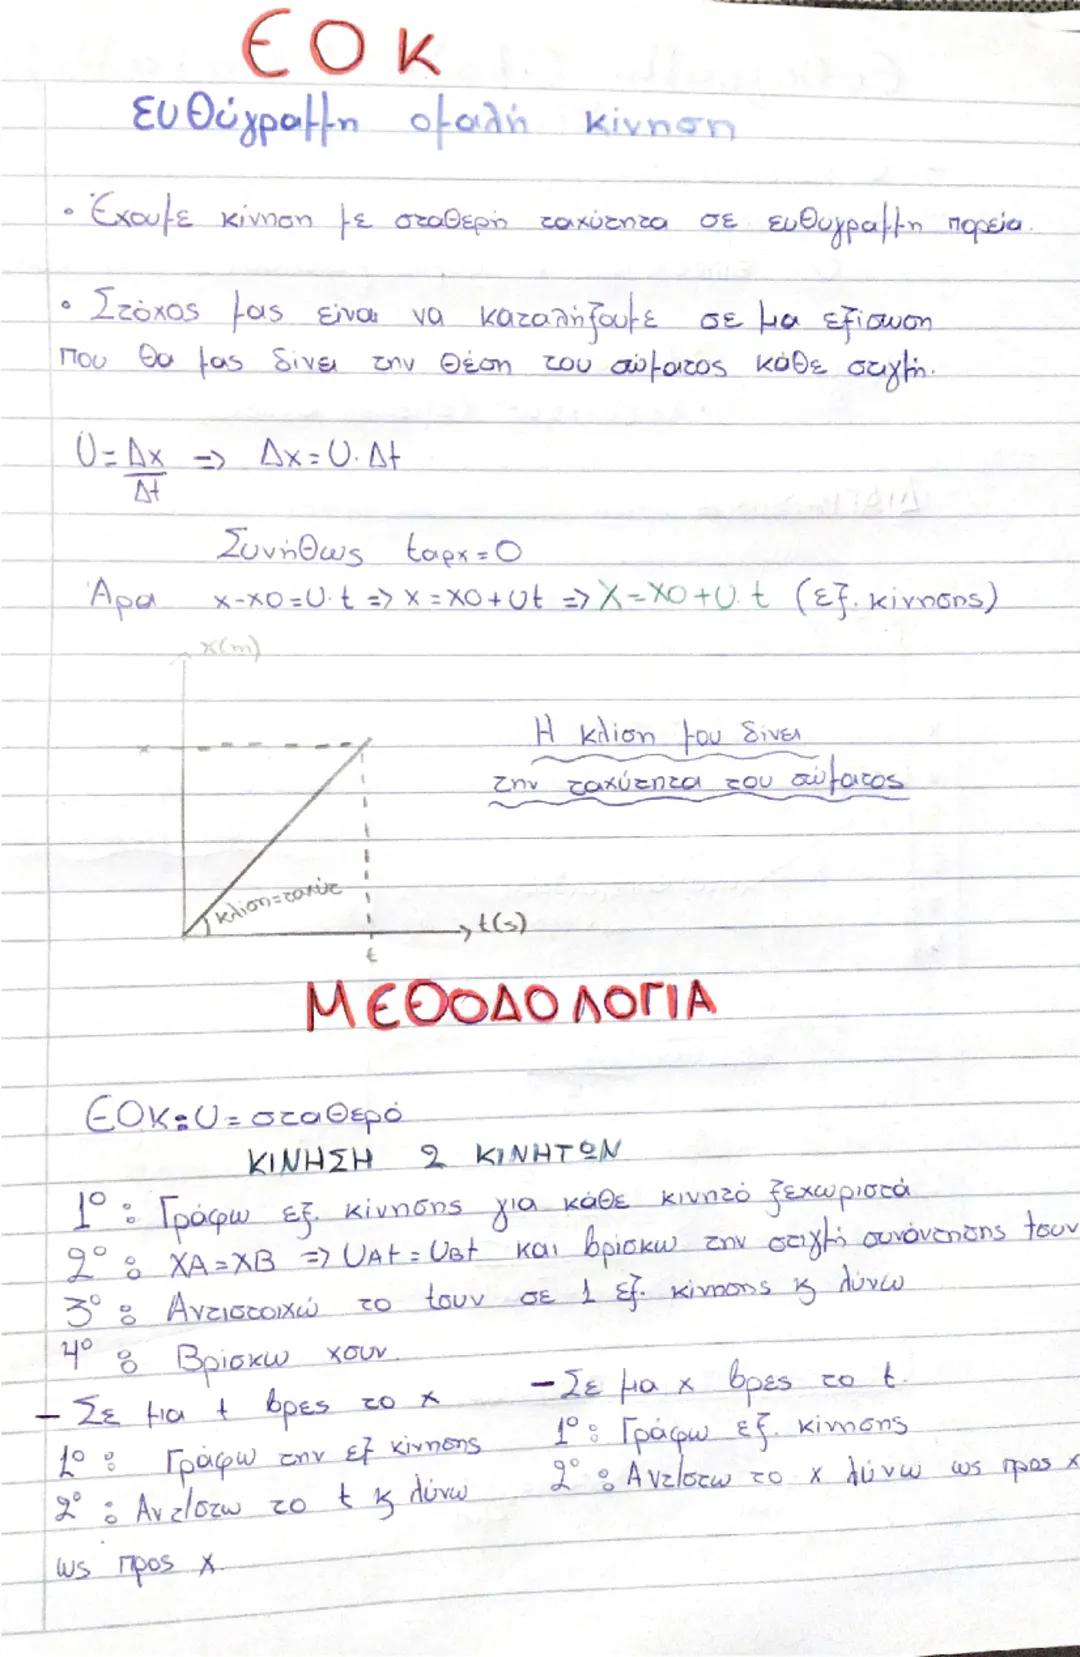 ΕΟΚ
ευθύγραμμη ομαλή κίνηση
• Έχουμε κίνηση με σταθερή ταχύτητα σε ευθυγραμμη πορεία.
• Στόχος μας είναι να καταλήξουμε σε μια εξίσωση
που θα μας δίνει την θέση του σώματος κάθε στιγμή.
U = Δx/Δt => Δx = U · Δt
Συνήθως tαρχ = 0
Άρα x-x0 = U · t => x = x0 + Ut => X = X0 + U. t (εξ. κίνησης)
x(m)
x
Η κλίση μου δίνει
την ταχύτητα του σώματος
κλιση=ταχύτ
t(s)
t
ΜΕΘΟΔΟΛΟΓΙΑ
ΕΟΚ: U = σταθερό
ΚΙΝΗΣΗ 2 ΚΙΝΗΤΩΝ
1º : Γράφω εξ. κίνησης για κάθε κινητό ξεχωριστά
2º : XA = XB => UAt = UBt και βρίσκω την στιγμή συνάντησης tσυν
3º : Αντιστοιχώ το tσυν σε 1 εξ. κίνησης κ λύνω
4º : Βρίσκω xσυν.
- Σε μια t βρες το x
1º : Γράφω την εξ κίνησης
2º : Αντ/στω το t κ λύνω
ως προς x.
- Σε μια x βρες το t.
1º : Γράφω εξ. κίνησης
2º : Αντ/στω το x λύνω ως προς x